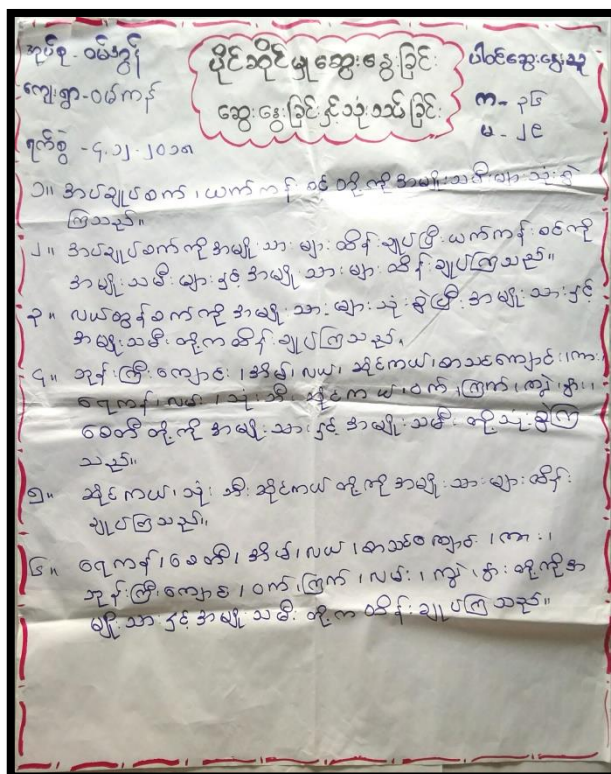 အုပ်စု - ဝမ်ကွန်
ကျေးရွာ - ဝမ်ကန်
ရက်စွဲ - ၄.၁၂.၂၀၁၈
ပိုင်ဆိုင်မှုဆွေးနွေးခြင်း
ဆွေးနွေးခြင်းနှင့်သုံးသပ်ခြင်း
ပါဝင်ဆွေးနွေးသူ
က - ၃၆
မ - ၂၉
၁။ အပ်ချုပ်စက်၊ ယက်ကန်းစင်တို့ကိုအမျိုးသမီးများသုံးစွဲ
ကြသည်။
၂။ အပ်ချုပ်စက်ကိုအမျိုးသားများထိန်းချုပ်ပြီးယက်ကန်းစင်ကို
အမျိုးသမီးများနှင့်အမျိုးသားများထိန်းချုပ်ကြသည်။
၃။ လယ်ထွန်စက်ကိုအမျိုးသားများသုံးစွဲပြီးအမျိုးသားနှင့်
အမျိုးသမီးတို့ကထိန်းချုပ်ကြသည်။
၄။ ဘုန်းကြီးကျောင်း၊ အိမ်၊ လယ်၊ ဆိုင်ကယ်၊ စာသင်ကျောင်း၊ ကား၊
ရေကန်၊ လမ်း၊ သုံးဘီးဆိုင်ကယ်၊ ဝက်၊ ကြက်၊ ကျွဲ၊ နွား၊
စေတီတို့ကိုအမျိုးသားနှင့်အမျိုးသမီးတို့သုံးစွဲကြ
သည်။
၅။ ဆိုင်ကယ်၊ သုံးဘီးဆိုင်ကယ်တို့ကိုအမျိုးသားများထိန်း
ချုပ်ကြသည်။
၆။ ရေကန်၊ စေတီ၊ အိမ်၊ လယ်၊ စာသင်ကျောင်း၊ ကား၊
ဘုန်းကြီးကျောင်း၊ ဝက်၊ ကြက်၊ လမ်း၊ ကျွဲ၊ နွားတို့ကိုအ
မျိုးသားနှင့်အမျိုးသမီးတို့ကထိန်းချုပ်ကြသည်။